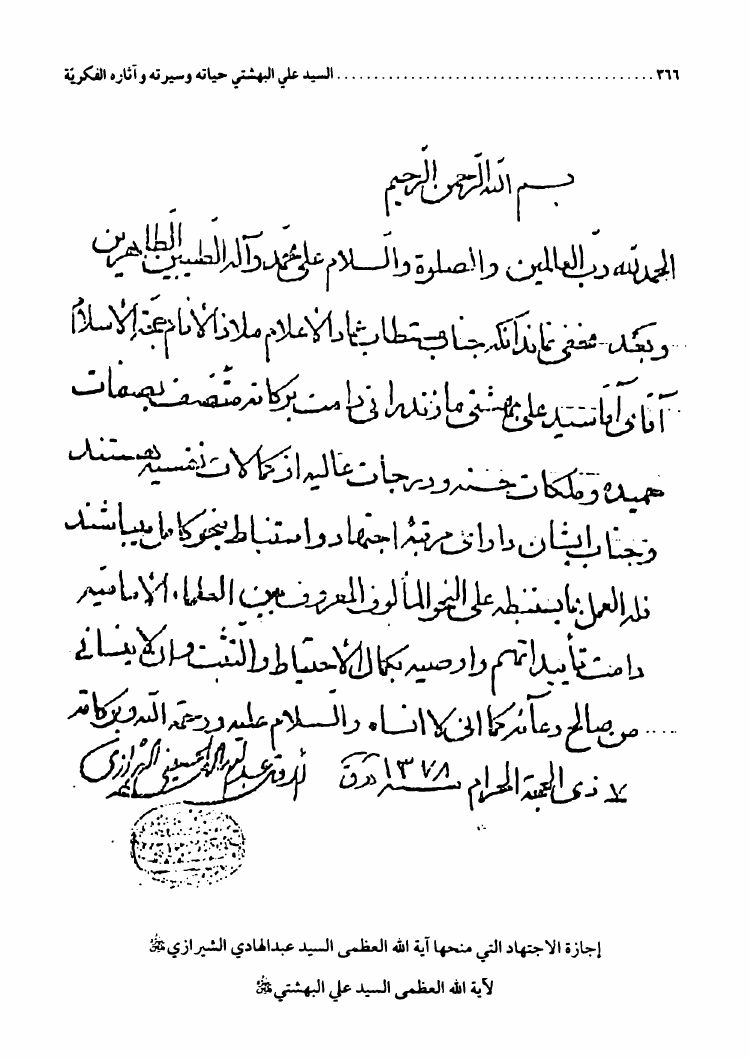 ٣٦٦ ........................................ السيد علي البهشتي حياته وسيرته وآثاره الفكريّة
بسم الله الرّحمن الرّحيم
الحمد لله ربّ العالمين والصلوة والسلام على محمّد وآله الطيبين الطّاهرين
وبعد مخفى نماند آنكه جناب مستطاب عماد الاعلام ملاذ الأنام حجّة الاسلام
آقاى آقا سيد على بهشتى مازندرانى دامت بركاته متّصف بصفات
حميده وملكات حسنه ودرجات عاليه از كمالات نفسيه هستند
وجناب ايشان داراى مرتبۀ اجتهاد واستنباط بنحو كامل ميباشند
فله العمل بما يستنبطه على النحو المألوف المعروف بين العلماء الإماميّه
دامت تأييداتهم واوصيه بكمال الأحتياط والتثبت وان لا ينسانى
من صالح دعائه كما انى لا انساه والسلام عليه ورحمة الله وبركاته
٧ ذى الحجة الحرام سنه ١٣٧٨ عبد الهادى الحسينى الشيرازى
إجازة الاجتهاد التي منحها آية الله العظمى السيد عبدالهادي الشيرازي
لآية الله العظمى السيد علي البهشتي